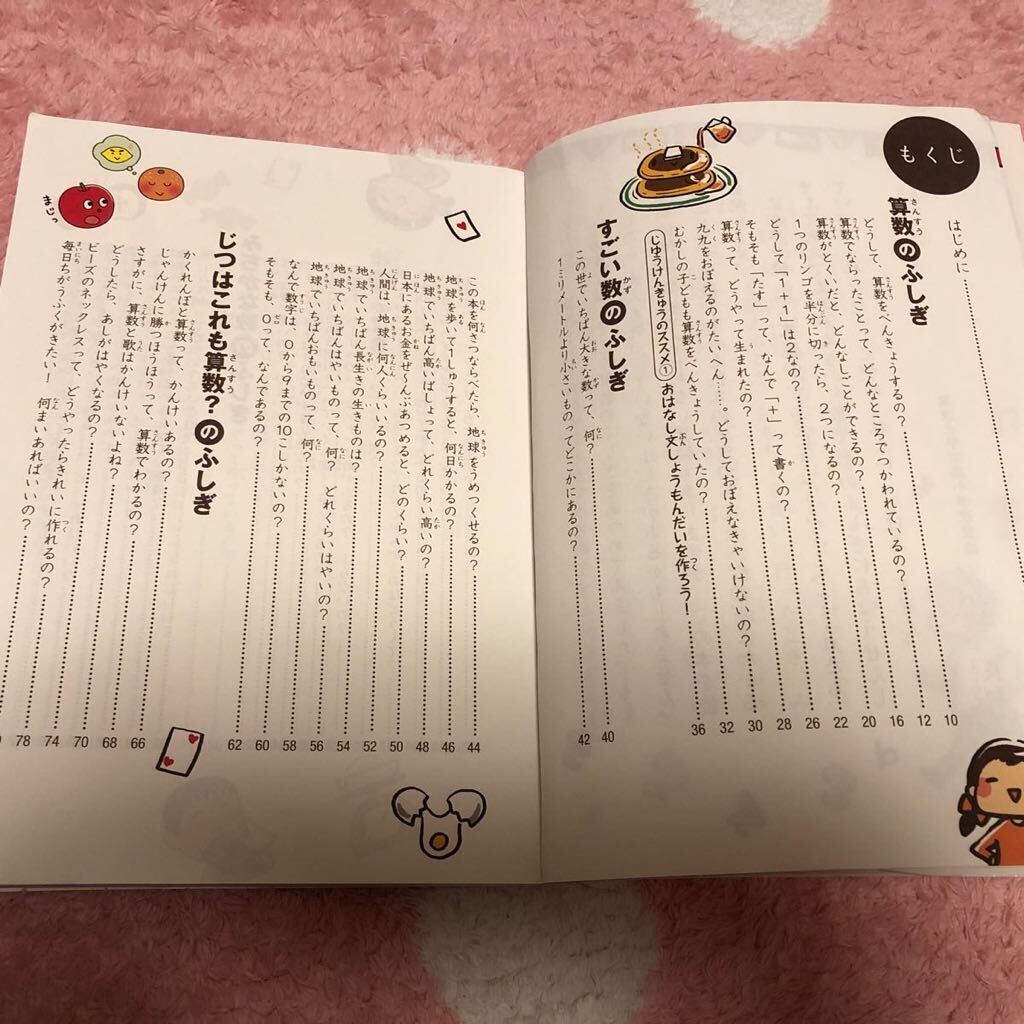 もくじ
はじめに
算数のふしぎ
どうして、算数をべんきょうするの? 10
算数でならったことって、どんなところでつかわれているの? 12
算数がとくいだと、どんなしごとができるの? 16
1つのリンゴを半分に切ったら、2つになるの? 20
どうして「1+1」は2なの? 22
そもそも「たす」って、なんで「+」って書くの? 26
算数って、どうやって生まれたの? 28
九九をおぼえるのがたいへん……。どうしておぼえなきゃいけないの? 30
むかしの子どもも算数をべんきょうしていたの? 32
じゆうけんきゅうのススメ① おはなし文しょうもんだいを作ろう! 36
すごい数のふしぎ
この世でいちばん大きな数って、何? 40
1ミリメートルより小さいものってどこかにあるの? 42
この本を何さつならべたら、地球をうめつくせるの? 44
地球を歩いて1しゅうすると、何日かかるの? 46
地球でいちばん高いばしょって、どれくらい高いの? 48
日本にあるお金をぜ〜んぶあつめると、どのくらい? 50
人間は、地球に何人くらいいるの? 52
地球でいちばん長生きの生きものは? 54
地球でいちばんはやいものって、何? どれくらいはやいの? 56
地球でいちばんおもいものって、何? 58
なんで数字は、0から9までの10こしかないの? 60
そもそも、0って、なんであるの? 62
じつはこれも算数?のふしぎ
かくれんぼと算数って、かんけいあるの? 66
じゃんけんに勝つほうほうって、算数でわかるの? 68
さすがに、算数と歌はかんけいないよね? 70
どうしたら、あしがはやくなるの? 74
ビーズのネックレスって、どうやったらきれいに作れるの? 78
毎日ちがうふくがきたい! 何まいあればいいの?
まじっ